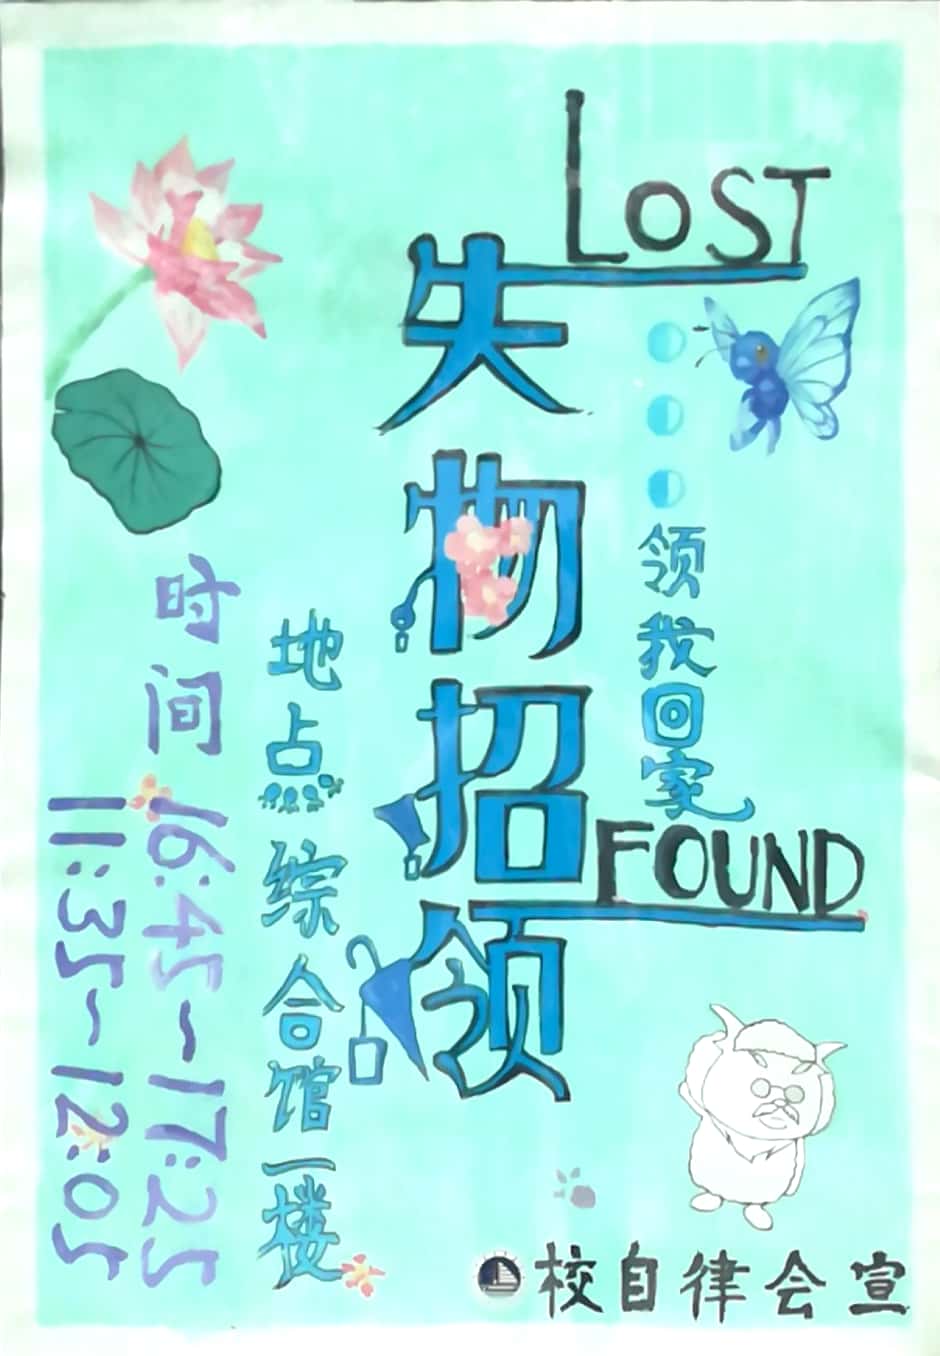 LOST
失物招领
领我回家
FOUND
地点综合馆一楼
时间
16:45~17:25
11:35~12:05
校自律会宣